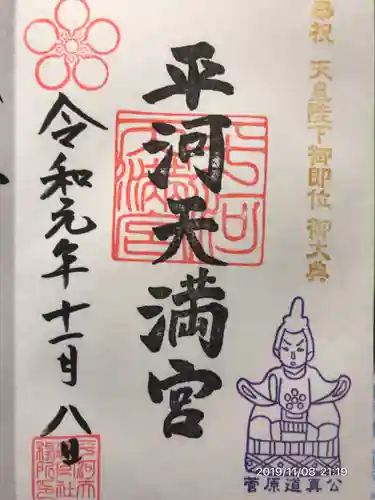 奉祝 天皇陛下御即位 御大典
平河天満宮
令和元年十一月八日
菅原道真公
2019/11/08 21:19